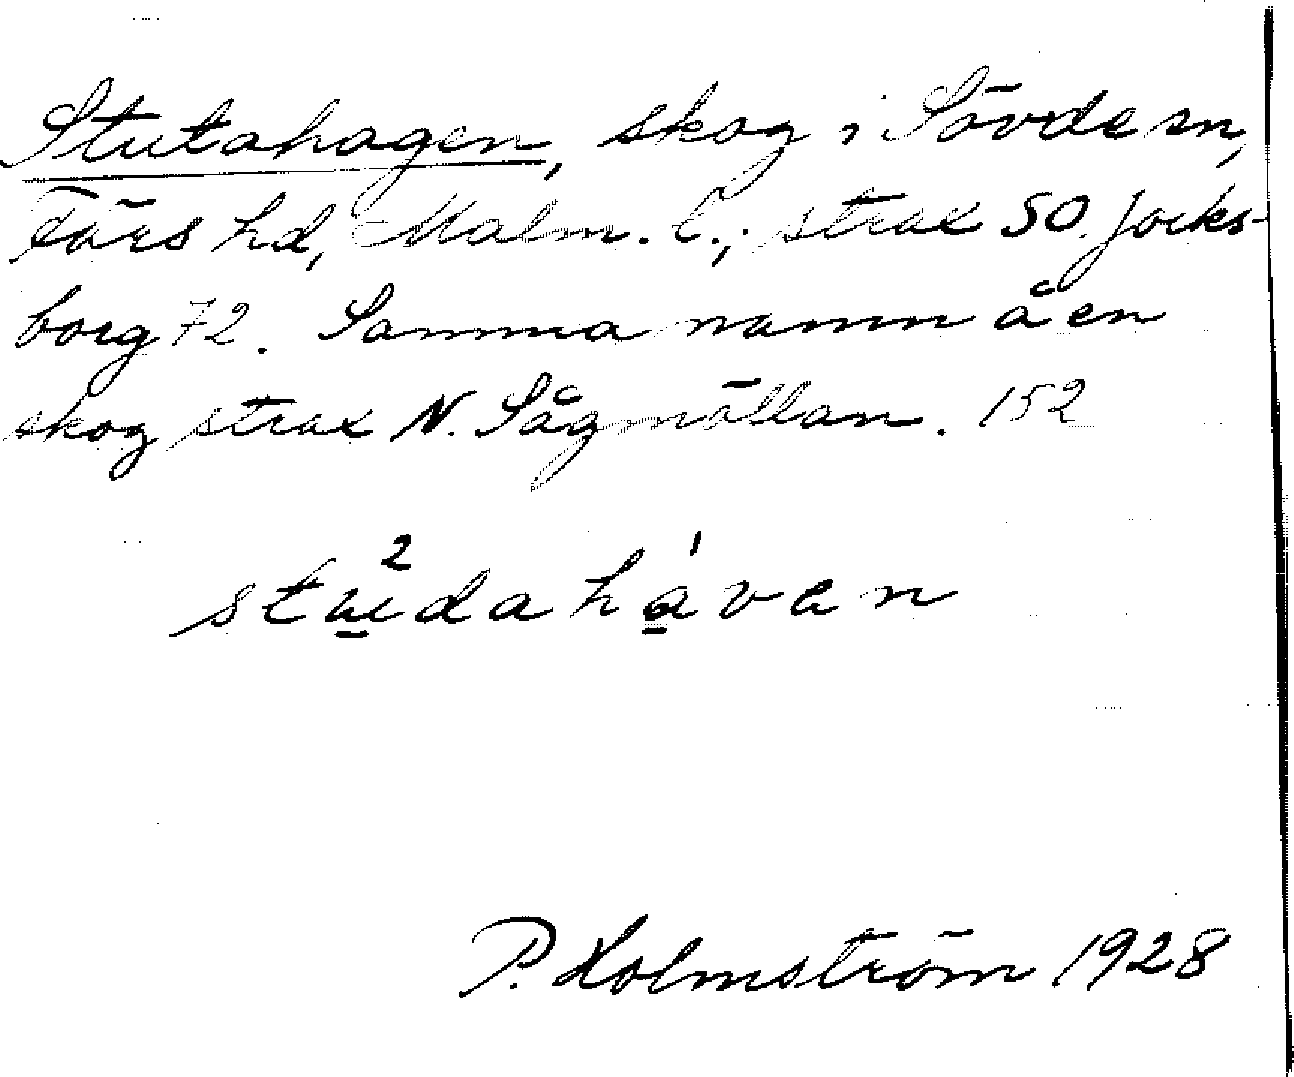 Stutahagen, skog i Sövde sn,
Färs hd, Malm. l.; strax SO. Jocks-
borg 72. Samma namn å en
skog strax N. Sågmöllan. 152
2 1
stu̲edaha̲van
P. Holmström 1928